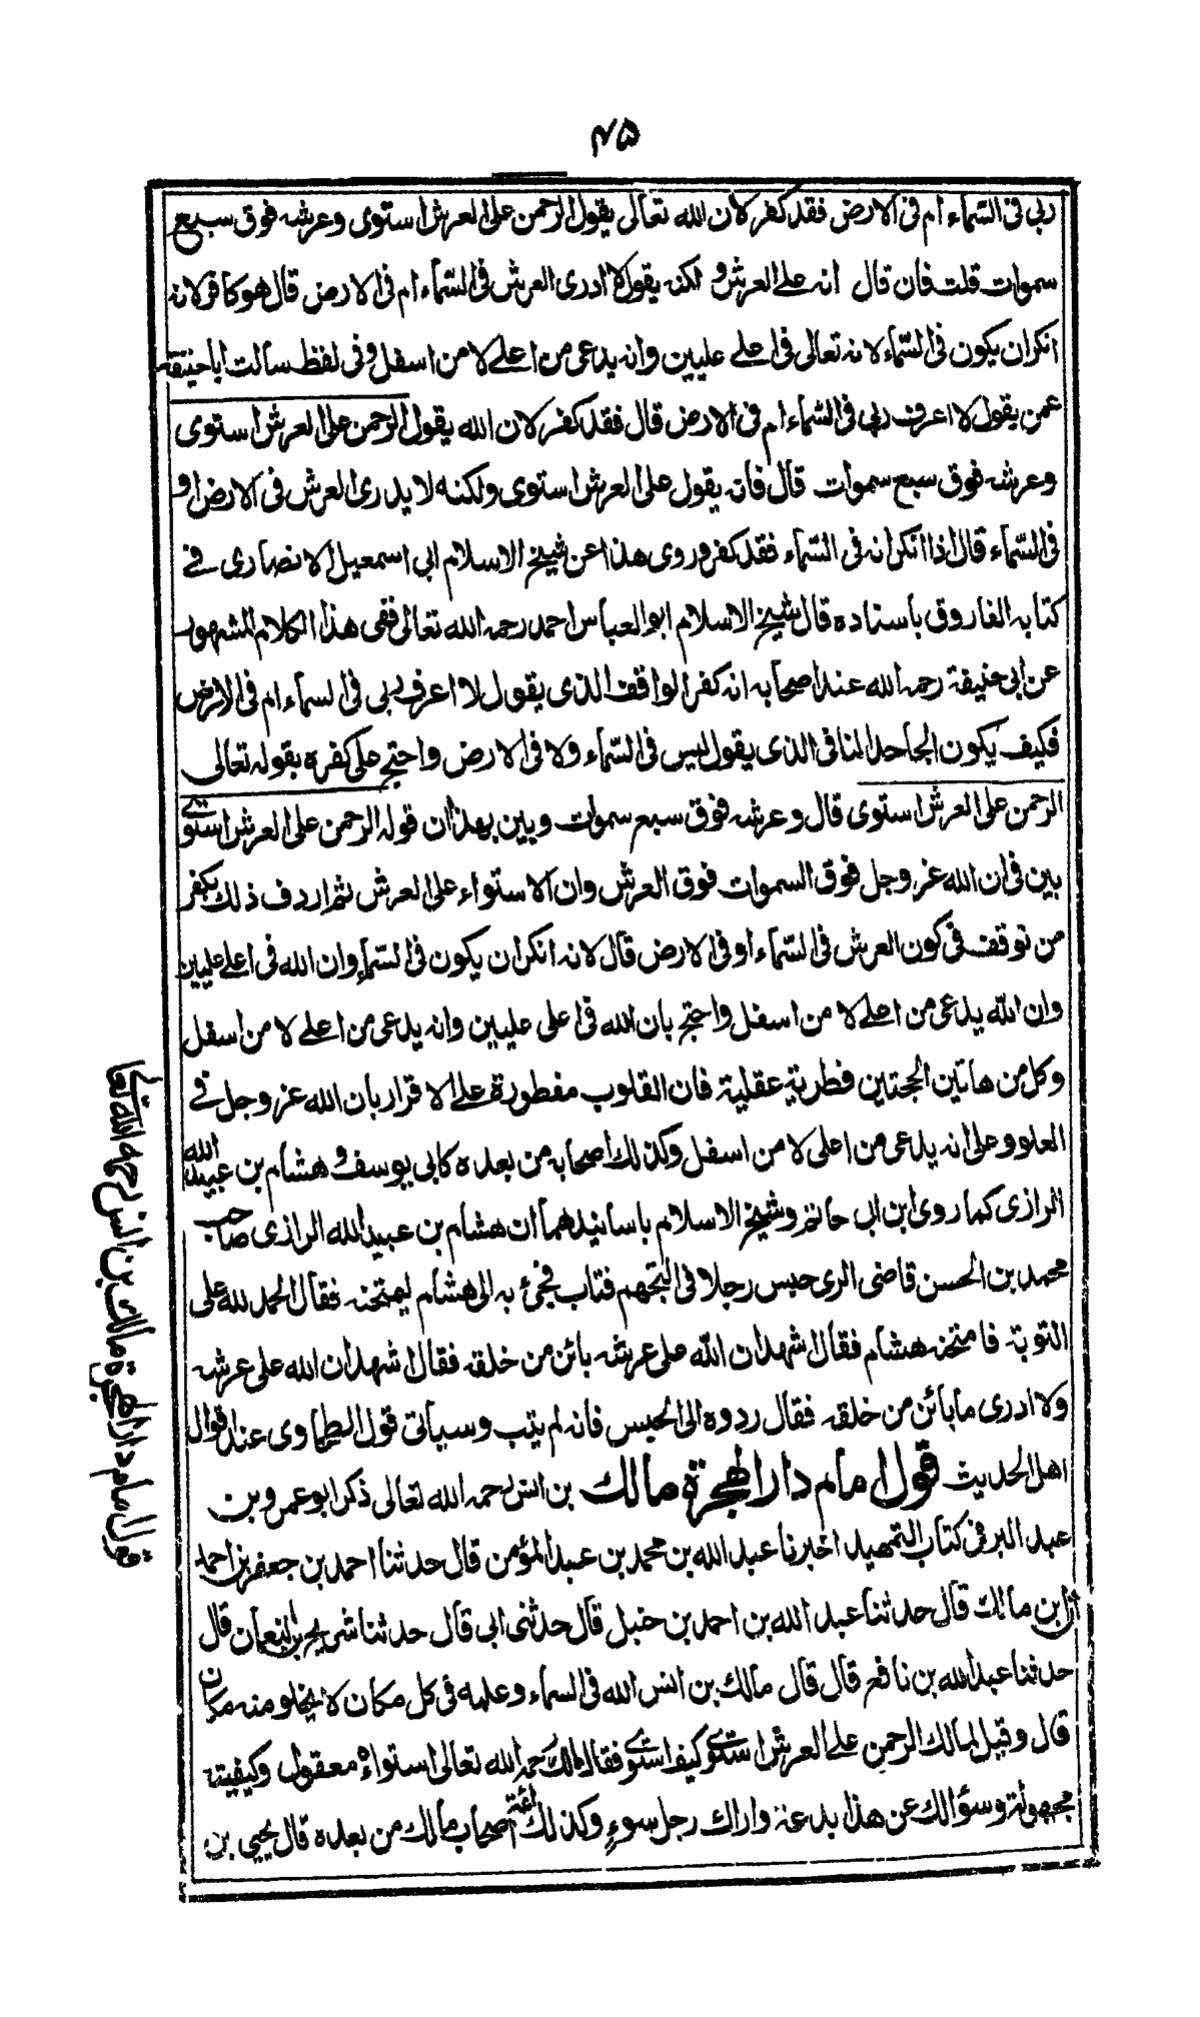 ۴۵
ربی فی السماء ام فی الارض فقد کفر لان الله تعالی یقول الرحمن علی العرش استوی وعرشه فوق سبع
سموات قلت فان قال انه علی العرش و لکنه یقول لا ادری العرش فی السماء ام فی الارض قال هو کافر لانه
انکر ان یکون فی السماء لانه تعالی فی اعلے علیین وانه یدعی من اعلے لا من اسفل وفی لفظ سالت ابا حنیفة
عمن یقول لا اعرف ربی فی السماء ام فی الارض قال فقد کفر لان الله یقول الرحمن علی العرش استوی
وعرشه فوق سبع سموات قال فانه یقول علی العرش استوی ولکنه لا یدری العرش فی الارض او
فی السماء قال اذا انکر انه فی السماء فقد کفر وروی هذا عن شیخ الاسلام ابی اسمعیل الانصاری فے
کتابه الفاروق باسناده قال شیخ الاسلام ابو العباس احمد رحمه الله تعالی ففی هذا الکلام المشهور
عن ابی حنیفة رحمه الله عند اصحابه انه کفر الواقف الذی یقول لا اعرف ربی فی السماء ام فی الارض
فکیف یکون الجاحد النافی الذی یقول لیس فی السماء ولا فی الارض واحتج علی کفره بقوله تعالی
الرحمن علی العرش استوی قال وعرشه فوق سبع سموات وبین بهذا ان قوله الرحمن علی العرش استوے
بین فی ان الله عز وجل فوق السموات فوق العرش وان الاستواء علی العرش ثم اردف ذلك بکفر
من توقف فی کون العرش فی السماء او فی الارض قال لانه انکر ان یکون فی السماء وان الله فی اعلے علیین
وان الله یدعی من اعلے لا من اسفل واحتج بان الله فی اعلی علیین وانه یدعی من اعلے لا من اسفل
وکل من هاتین الحجتین فطریة عقلیة فان القلوب مفطورة علے الاقرار بان الله عز وجل فے
العلو وعلی انه یدعی من اعلی لا من اسفل وکذلك اصحابه من بعده کابی یوسف و هشام بن عبید الله
الرازی کما روی ابن ابی حاتم وشیخ الاسلام باسانیدهما ان هشام بن عبید الله الرازی صاحب
محمد بن الحسن قاضی الری حبس رجلا فی التجهم فتاب فجیٔ به الی هشام لیمتحنه فقال الحمد لله علی
التوبة فامتحنه هشام فقال اشهد ان الله علی عرشه بائن من خلقه فقال اشهد ان الله علی عرشه
ولا ادری ما بائن من خلقه فقال ردوه الی الحبس فانه لم یتب وسیاتی قول الطحاوی عند اقوال
اهل الحدیث قول امام دار الهجرة مالك بن انس رحمه الله تعالی ذکر ابو عمرو بن
عبد البر فی کتاب التمهید اخبرنا عبد الله بن محمد بن عبد المؤمن قال حدثنا احمد بن جعفر بن احمد
ابن مالك قال حدثنا عبد الله بن احمد بن حنبل قال حدثنی ابی قال حدثنا شریح بن النعمان قال
حدثنا عبد الله بن نافع قال قال مالك بن انس الله فی السماء وعلمه فی کل مکان لا یخلو منه مکان
قال وقیل لمالك الرحمن علے العرش استوے کیف استوے فقال مالك رحمه الله تعالی استواءه معقول وکیفیته
مجهولة وسؤالك عن هذا بدعة واراك رجل سوءٍ وکذلك ائمة اصحاب مالك من بعده قال یحیی بن
قول امام دار الهجرة مالك بن انس رحمه الله تعالی